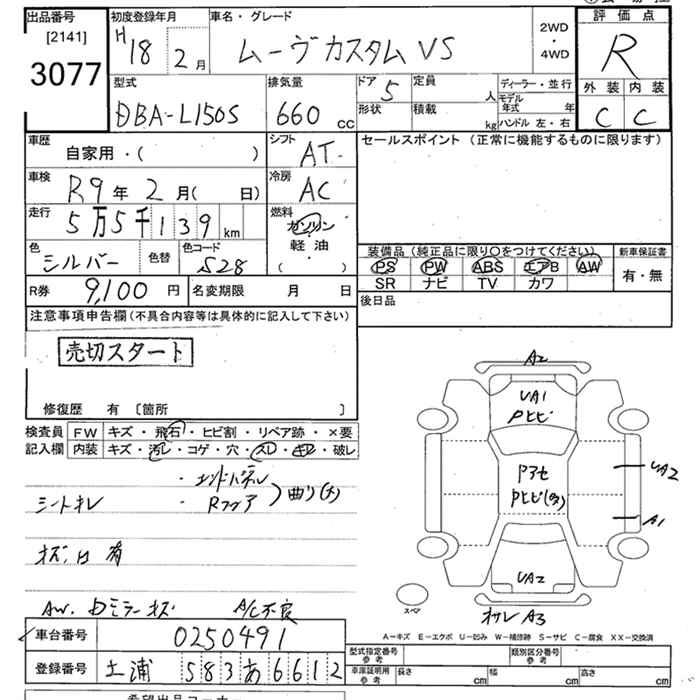 出品番号 初度登録年月 車名・グレード 評価点
[2141]
3077 H18 2月 ムーヴカスタムVS 2WD・4WD R
型式 排気量 ドア 定員 ディーラー・並行 外装 内装
DBA-L150S 660cc 5 人 モデル年式 年 C C
形状 積載 kg ハンドル 左・右
車歴 シフト セールスポイント (正常に機能するものに限ります)
自家用・( ) AT
車検 冷房
R9年2月( 日) AC
走行 燃料
5万5千139km ガソリン
軽油
( )
色 色替 色コード
シルバー S28
装備品 (純正品に限り○をつけてください) 新車保証書
PS PW ABS エアB AW 有・無
SR ナビ TV カワ
R券 9,100円 名変期限 月 日 後日品
注意事項申告欄 (不具合内容等は具体的に記入して下さい)
売切スタート
修復歴 有 〔箇所 〕
検査員 FW キズ・飛石・ヒビ割・リペア跡・×要
記入欄 内装 キズ・汚レ・コゲ・穴・スレ・キレ・破レ
・エンドパネル
シートキレ ・Rフロア 曲り(大)
キズ.凹 有
AW. Dミラーキズ A/C不良
A2
UA1
Pヒビ
Pアセ
Pヒビ
UA2
A1
UA2
スペア
オサレA3
A-キズ E-エクボ U-凹み W-補修跡 S-サビ C-腐食 XX-交換済
車台番号 0250491
登録番号 土浦 583 あ 6612
型式指定番号 参考 類別区分番号 参考
車庫証明用 参考 長さ cm 幅 cm 高さ cm